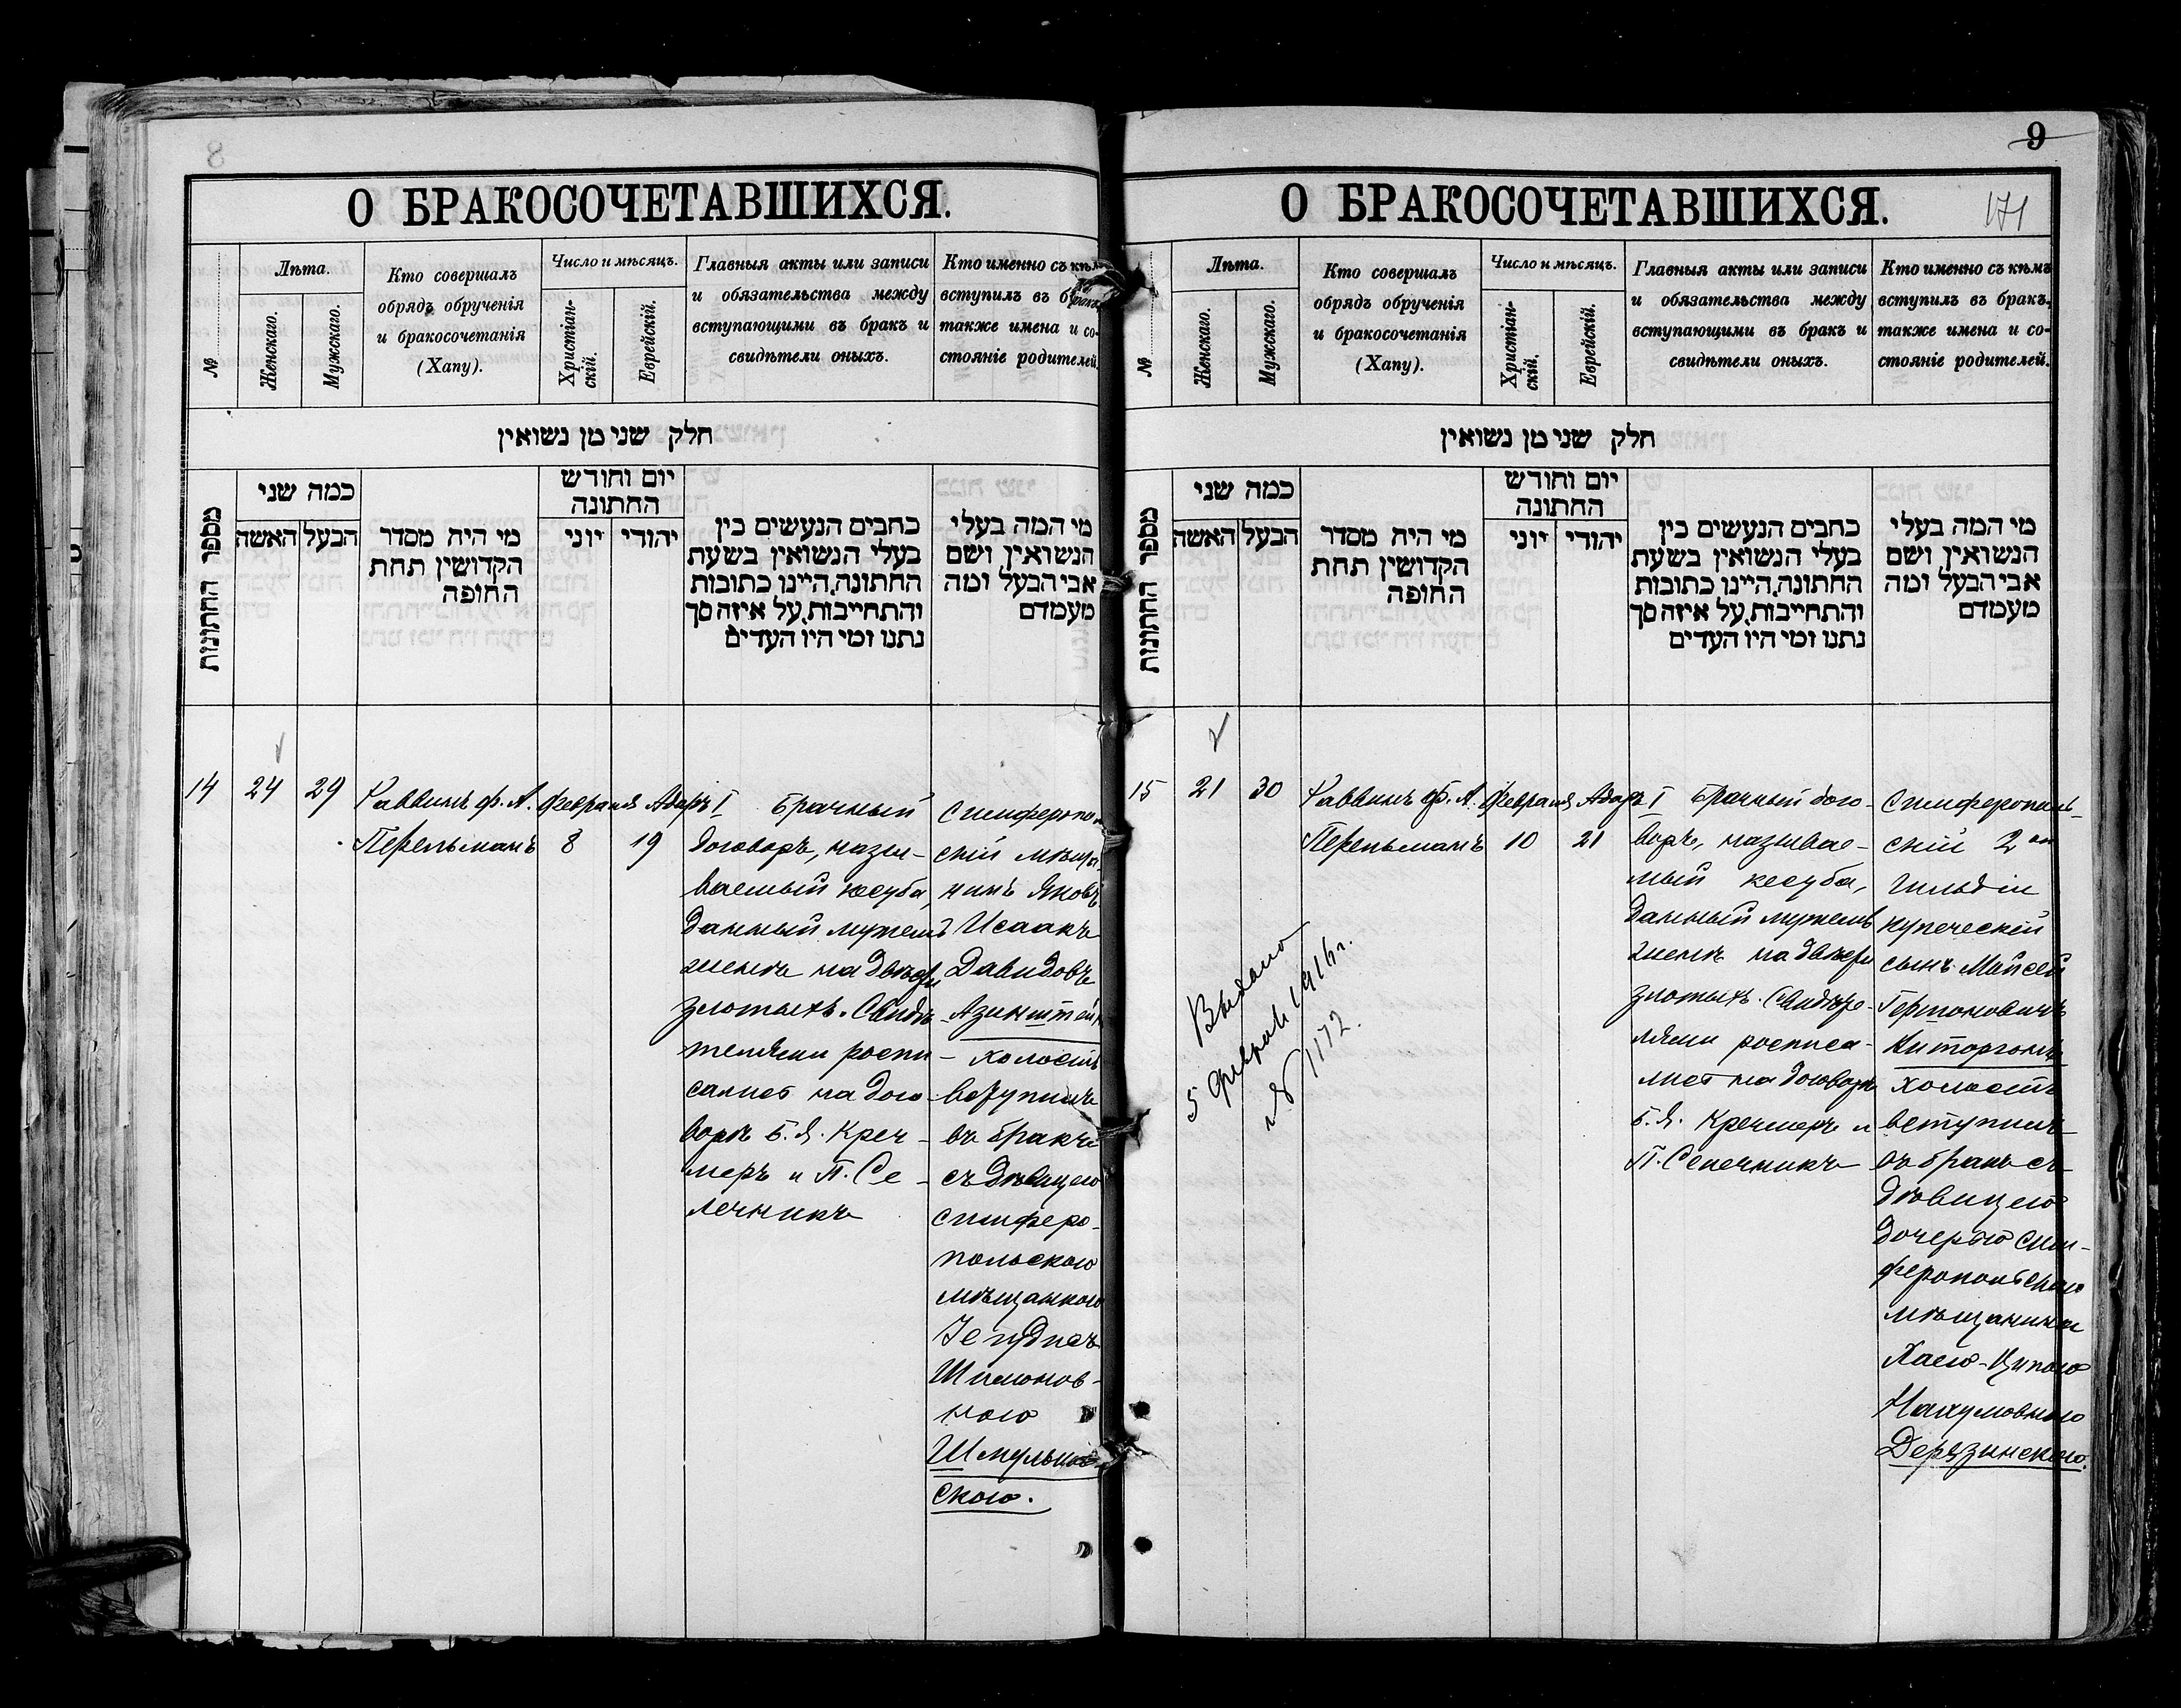 8
О БРАКОСОЧЕТАВШИХСЯ.
№
Лѣта.
Женскаго.
Мужскаго.
Кто совершалъ
обрядъ обрученія
и бракосочетанія
(Хапу).
Число и мѣсяцъ.
Христіан-
скій.
Еврейскій.
Главныя акты или записи
и обязательства между
вступающими въ бракъ и
свидѣтели оныхъ.
Кто именно съ кѣмъ
вступилъ въ бракъ,
также имена и со-
стояніе родителей.
חלק שני מן נשואין
מספר החתונות
כמה שני
הבעל האשה
מי היה מסדר
הקדושין תחת
החופה
יום וחודש
החתונה
יהודי יוני
כתבים הנעשים בין
בעלי הנשואין בשעת
החתונה, היינו כתובות
והתחייבות, על איזה סך
נתנו ומי היו העדים
מי המה בעלי
הנשואין ושם
אבי הבעל ומה
מעמדם
14 24 29
Раввинъ Ф. А.
Перельманъ
Февраля
8
Адаръ I
19
Брачный
договоръ, назы-
ваемый кесуба,
данный мужемъ
женѣ на двѣсти
злотыхъ. Свидѣ-
телями роспи-
сались на дого-
ворѣ Б. Я. Креч-
меръ и П. Се-
лечникъ
Симферополь-
скій мѣща-
нинъ Яковъ
Исаакъ
Давидовъ
Азинштейн
холостъ
вступилъ
въ бракъ
съ дѣвицею
симферо-
польскою
мѣщанкою
Шимонов-
ною
Шмульев-
скою.
9
171
О БРАКОСОЧЕТАВШИХСЯ.
№
Лѣта.
Женскаго.
Мужскаго.
Кто совершалъ
обрядъ обрученія
и бракосочетанія
(Хапу).
Число и мѣсяцъ.
Христіан-
скій.
Еврейскій.
Главныя акты или записи
и обязательства между
вступающими въ бракъ и
свидѣтели оныхъ.
Кто именно съ кѣмъ
вступилъ въ бракъ,
также имена и со-
стояніе родителей.
חלק שני מן נשואין
מספר החתונות
כמה שני
הבעל האשה
מי היה מסדר
הקדושין תחת
החופה
יום וחודש
החתונה
יהודי יוני
כתבים הנעשים בין
בעלי הנשואין בשעת
החתונה, היינו כתובות
והתחייבות, על איזה סך
נתנו ומי היו העדים
מי המה בעלי
הנשואין ושם
אבי הבעל ומה
מעמדם
15 21 30
Раввинъ Ф. А.
Перельманъ
Февраля
10
Адаръ I
21
Брачный дого-
воръ, называе-
мый кесуба,
данный мужемъ
женѣ на двѣсти
злотыхъ. Свидѣте-
лями росписа-
лись на договорѣ
Б. Я. Кречмеръ и
П. Селечникъ
Симферополь-
скій 2ой
гильдіи
купеческій
сынъ Мойсей
Гершоновичъ
Киторгонъ
холостъ
вступилъ
въ бракъ съ
дѣвицею
дочерью Сим-
феропольскаго
мѣщанина
Хаею-Ципою
Нахумовною
Дерязинскою.
Выдано
5 Февраля 1916 г.
№ 1172.